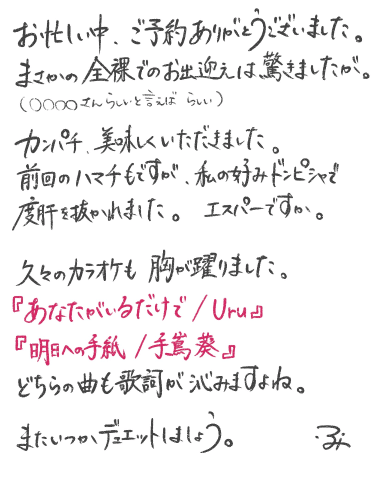 お忙しい中、ご予約ありがとうございました。
まさかの全裸でのお出迎えは驚きましたが。
(○○○○さんらしいと言えば らしい)
カンパチ、美味しくいただきました。
前回のハマチもですが、私の好みドンピシャで
度肝を抜かれました。 エスパーですか。
久々のカラオケも 胸が躍りました。
『あなたがいるだけで / Uru』
『明日への手紙 / 手嶌 葵』
どちらの曲も歌詞が 沁みますよね。
またいつか、デュエットしましょう。